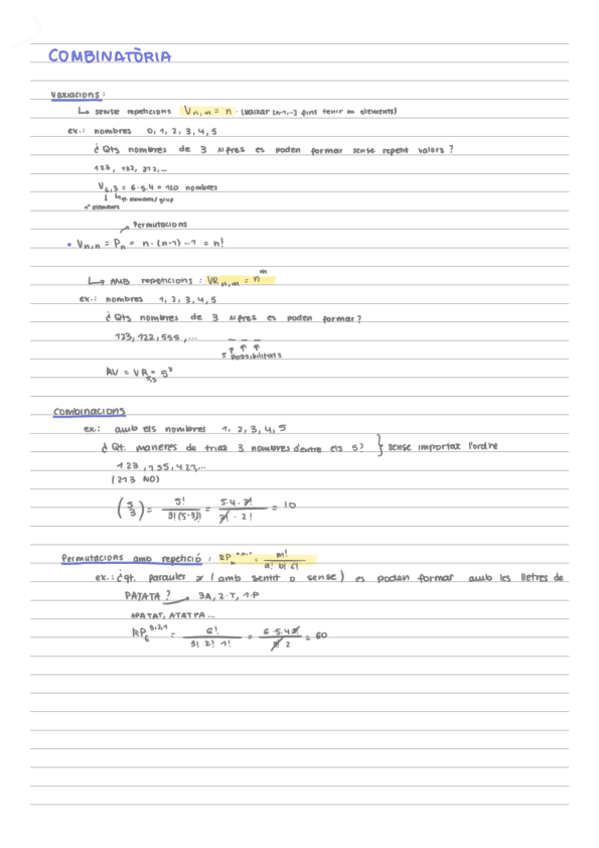 COMBINATÒRIA
Variacions:
↳ sense repeticions Vn,m = n · (baixar (n-1,...) fins tenir m elements)
ex.: nombres 0, 1, 2, 3, 4, 5
¿Qts nombres de 3 xifres es poden formar sense repetir valors?
123, 132, 312,...
V6,3 = 6·5·4 = 120 nombres
elements/grup
nº elements
Permutacions
• Vn,n = Pn = n·(n-1)...1 = n!
↳ AMB repeticions: VRn,m = n^m
ex.: nombres 1, 2, 3, 4, 5
¿Qts nombres de 3 xifres es poden formar?
123, 122, 555,...
5 possibilitats
VR5,3 = 5³
Combinacions
ex: amb els nombres 1, 2, 3, 4, 5
¿Qt. maneres de triar 3 nombres d'entre els 5? } sense importar l'ordre
123, 135, 421,...
(213 NO)
(5 3) = 5! / 3!(5-3)! = 5·4·3! / 3!·2! = 10
Permutacions amb repetició: RPm = m! / a! b! c!
ex.: ¿qt. paraules ≠ (amb sentit o sense) es poden formar amb les lletres de
PATATA? → 3A, 2·T, 1·P
APATAT, ATATPA...
RP6^3,2,1 = 6! / 3! 2! 1! = 6·5·4·3! / 3! 2 = 60